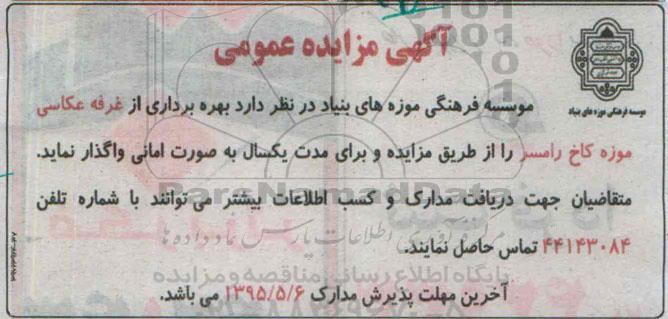 آگهی مزایده عمومی
موسسه فرهنگی موزه های بنیاد
موسسه فرهنگی موزه های بنیاد در نظر دارد بهره برداری از غرفه عکاسی
موزه کاخ رامسر را از طریق مزایده و برای مدت یکسال به صورت امانی واگذار نماید.
متقاضیان جهت دریافت مدارک و کسب اطلاعات بیشتر می توانند با شماره تلفن
۴۴۱۴۳۰۸۴ تماس حاصل نمایند.
آخرین مهلت پذیرش مدارک ۱۳۹۵/۵/۶ می باشد.
ParsNamadData
مرکز فرآوری اطلاعات پارس نماد داده ها
پایگاه اطلاع رسانی مناقصه و مزایده